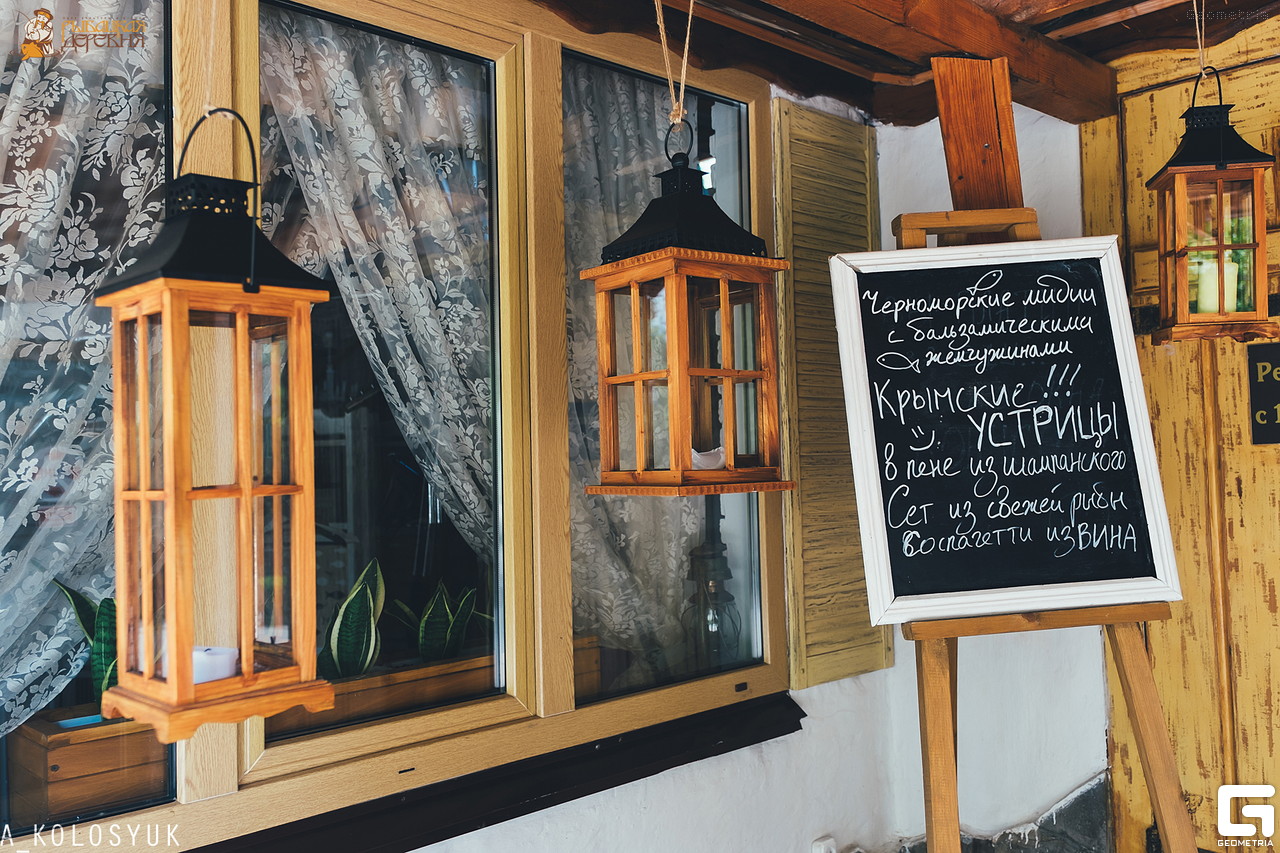 Рыбацкая
деревня
Geometria
Черноморские мидии
с бальзамическими
жемчужинами
Крымские!!!
УСТРИЦЫ
в пене из шампанского
Сет из свежей рыбы
Соспагетти из ВИНА
Ре
с
A_KOLOSYUK
GEOMETRIA